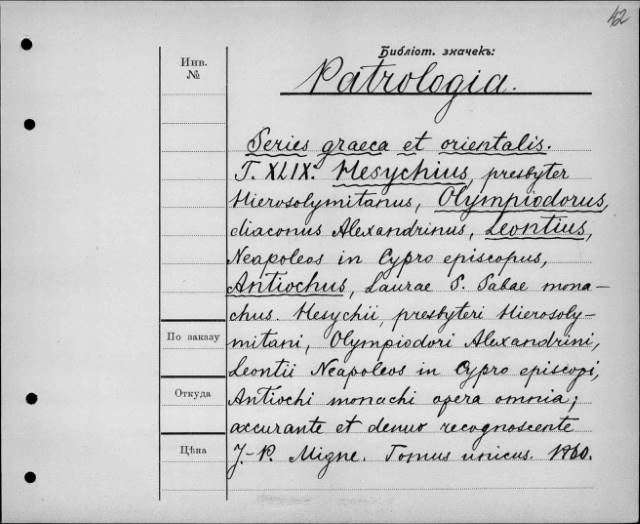 42
Библіот. значекъ:
Инв.
№
Patrologia.
Series graeca et orientalis.
T. XLIX. Hesychius, presbyter
Hierosolymitanus, Olympiodorus,
diaconus Alexandrinus, Leontius,
Neapoleos in Cypro episcopus,
Antiochus, Laurae S. Sabae mona-
chus. Hesychii, presbyteri Hierosoly-
mitani, Olympiodori Alexandrini,
По заказу
Leontii Neapoleos in Cypro episcopi,
Откуда
Antiochi monachi opera omnia;
accurante et denuo recognoscente
Цѣна
J.-P. Migne. Tomus unicus. 1860.